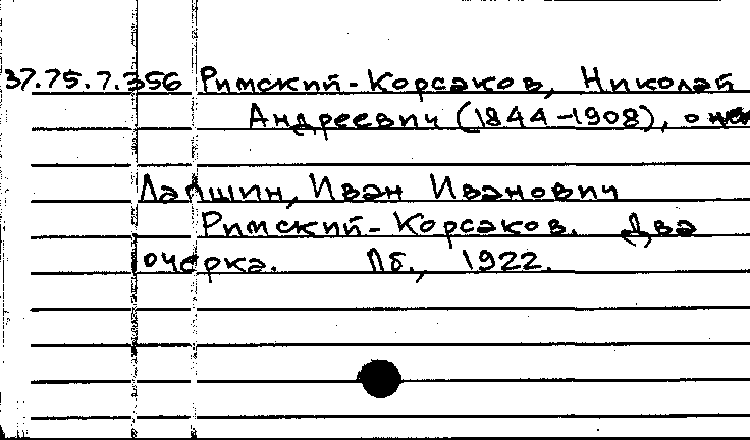 37.75.7.356 Римский-Корсаков, Николай
Андреевич (1844-1908), о нем
Лапшин, Иван Иванович
Римский-Корсаков. Два
очерка. Пб., 1922.